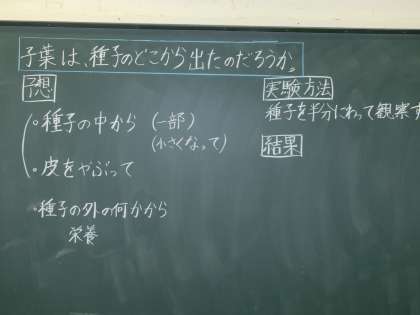 子葉は、種子のどこから出たのだろうか。
予想
・種子の中から (一部)
(小さくなって)
・皮をやぶって
・種子の外の何かから
栄養
実験方法
種子を半分にわって観察す
結果